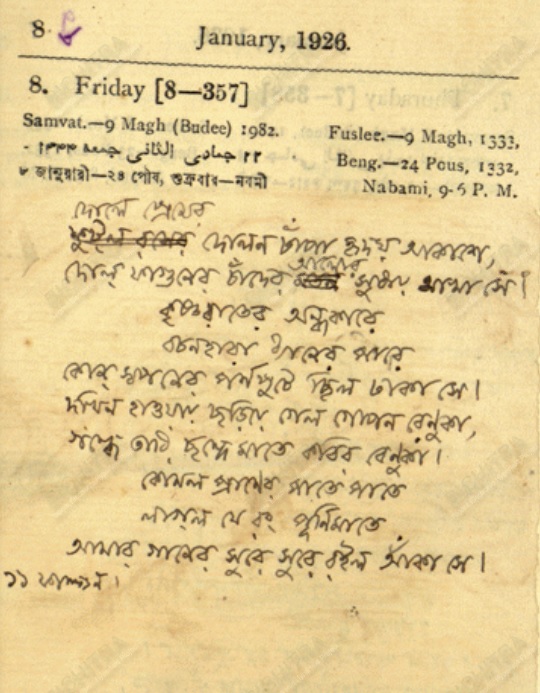 8
January, 1926.
8. Friday [8—357]
Samvat.—9 Magh (Budee) 1982.
Fuslee.—9 Magh, 1333,
۲۲ جمادی الثانی جمعه ۱۳۴۴
Beng.—24 Pous, 1332,
৮ জানুয়ারী—২৪ পৌষ, শুক্রবার—নবমী
Nabami, 9-5 P. M.
দোলে প্রেমের
দোলন চাঁপা হৃদয় আকাশে,
আলোর
দোল ফাগুনের চাঁদের সুধায় মাখা সে।
কৃষ্ণরাতের অন্ধকারে
বচনহারা ধ্যানের পারে
কোন্ স্বপনের পর্ণপুটে ছিল ঢাকা সে।
দখিন হাওয়ায় ছড়িয়ে গেল গোপন রেণুকা,
গন্ধে তারি ছন্দে মাতে কবির বেণুকা।
কোমল প্রাণের পাতে পাতে
লাগল যে রং পূর্ণিমাতে
আমার গানের সুরে সুরে রইল আঁকা সে।
১১ ফাল্গুন।